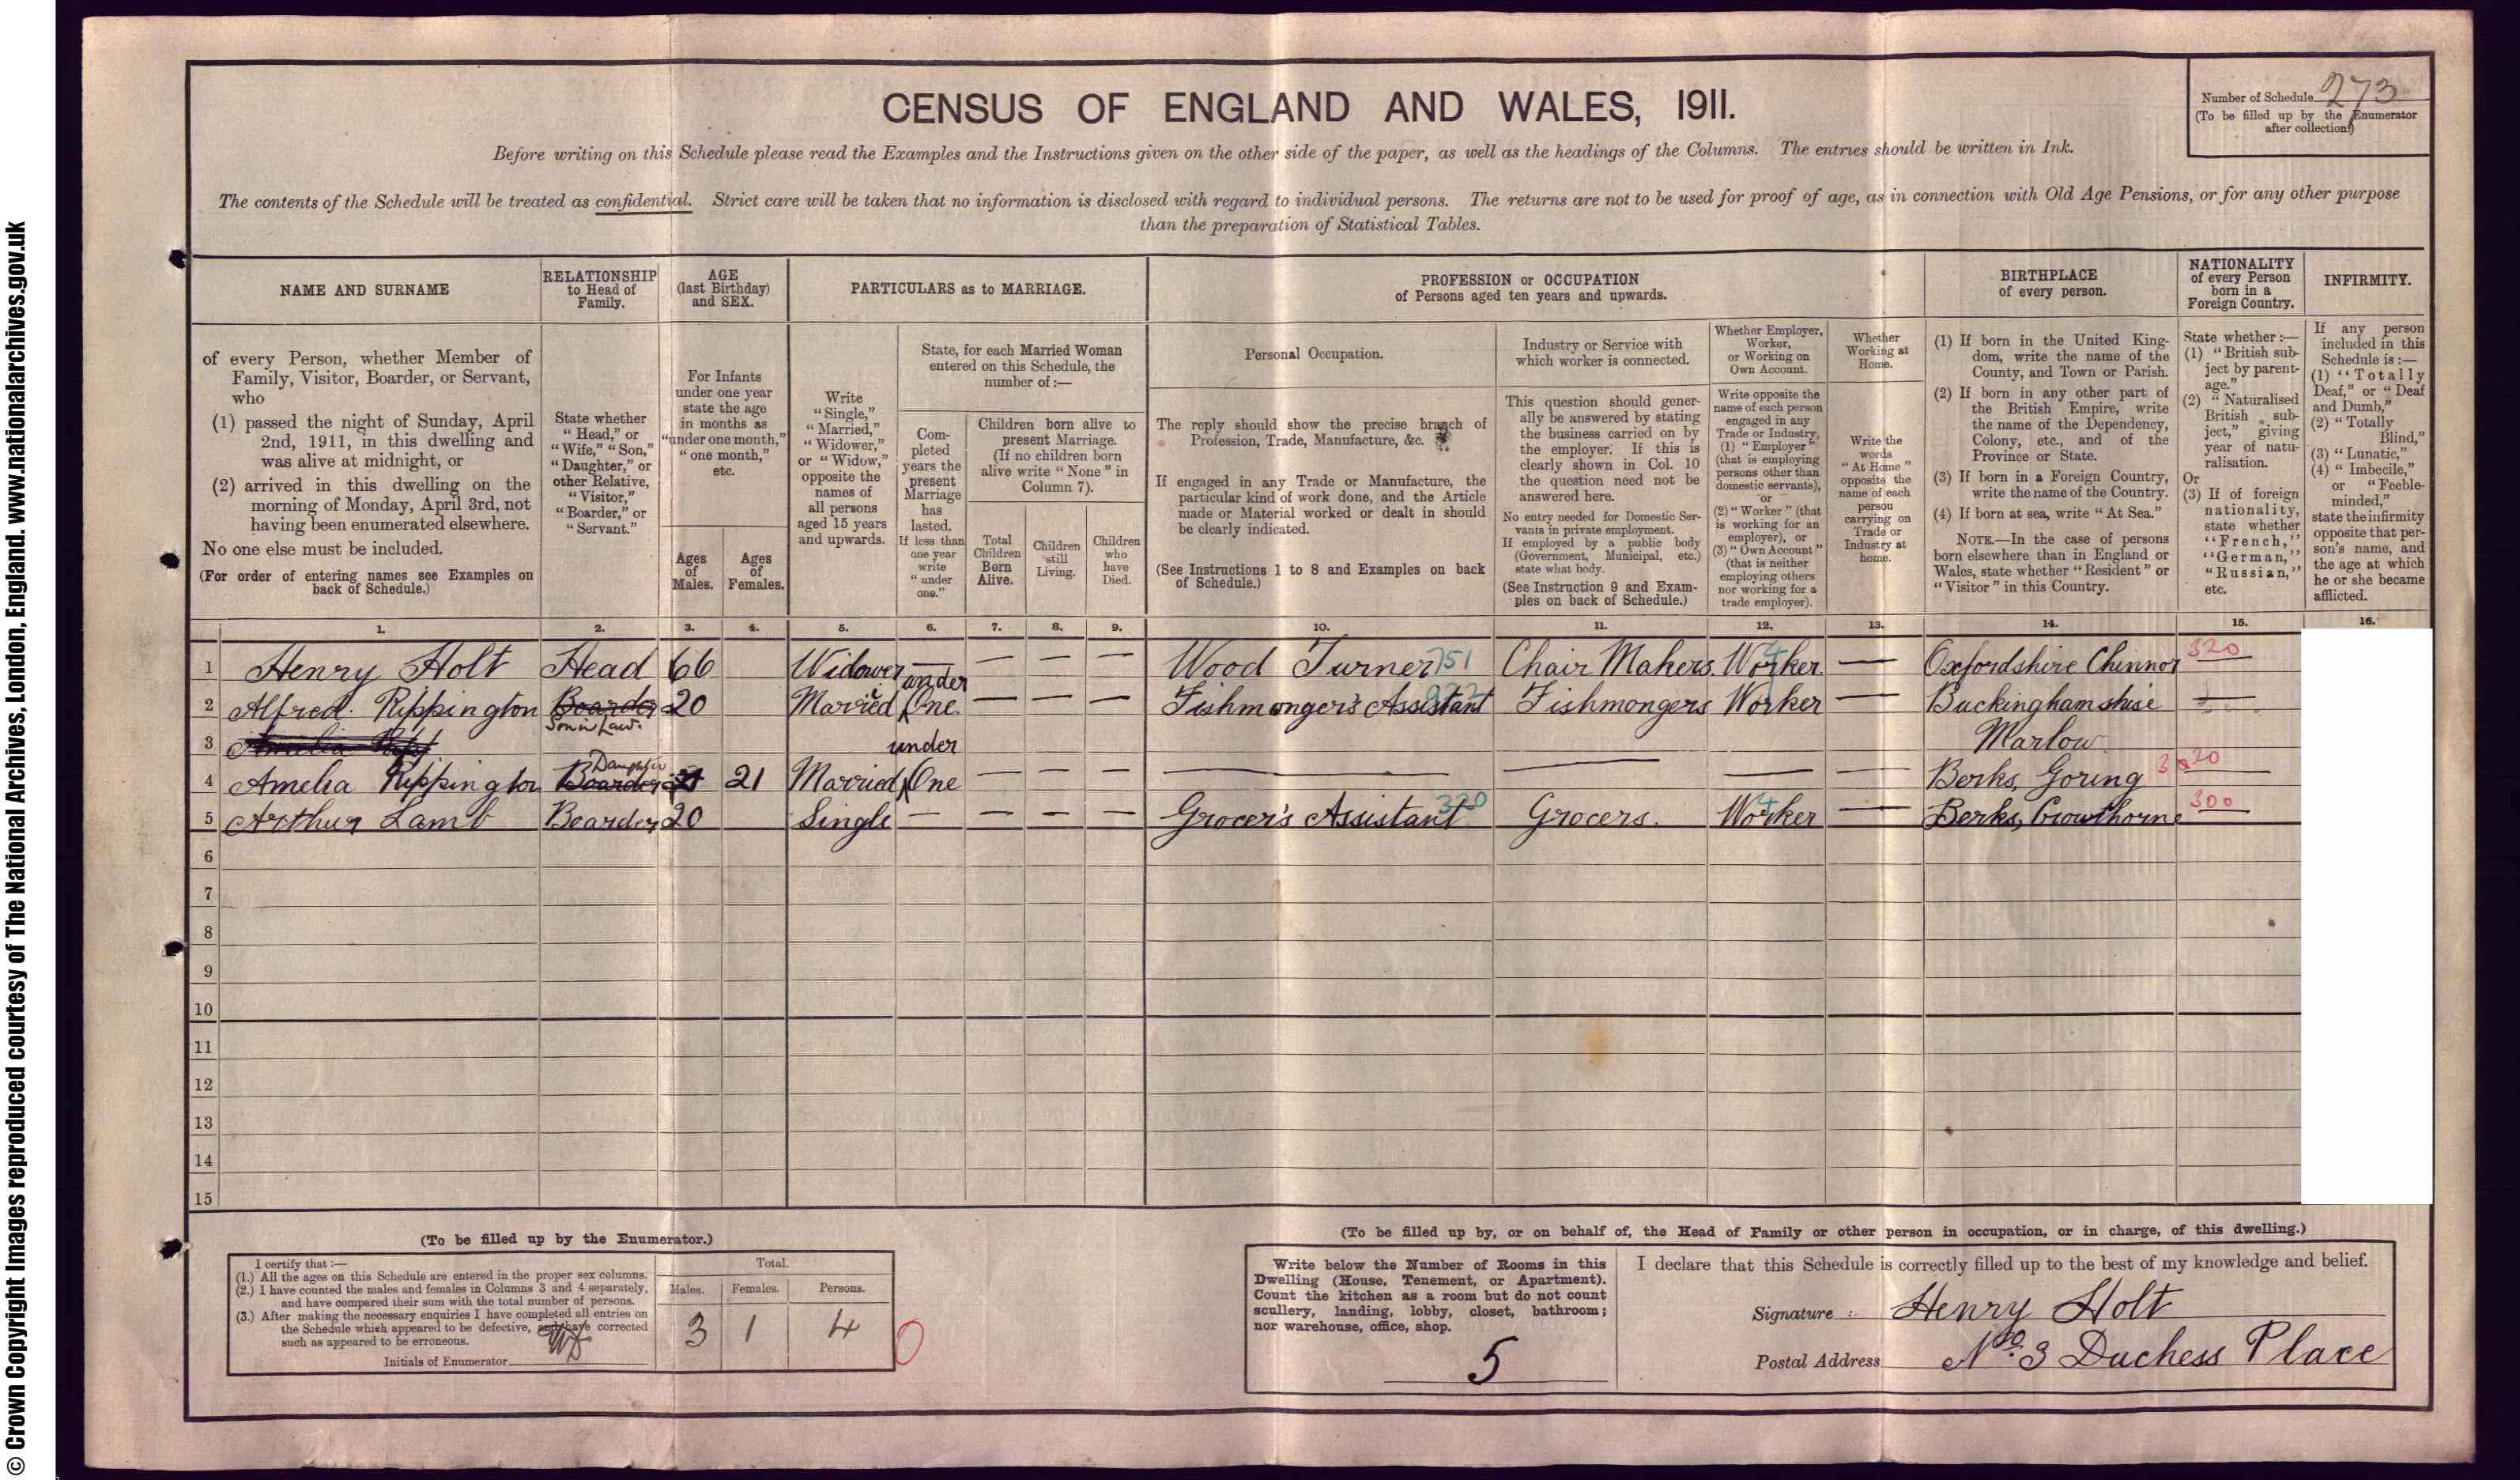 © Crown Copyright Images reproduced courtesy of The National Archives, London, England. www.nationalarchives.gov.uk
CENSUS OF ENGLAND AND WALES, 1911.
Number of Schedule 273
(To be filled up by the Enumerator
after collection.)
Before writing on this Schedule please read the Examples and the Instructions given on the other side of the paper, as well as the headings of the Columns. The entries should be written in Ink.
The contents of the Schedule will be treated as confidential. Strict care will be taken that no information is disclosed with regard to individual persons. The returns are not to be used for proof of age, as in connection with Old Age Pensions, or for any other purpose
than the preparation of Statistical Tables.
NAME AND SURNAME
of every Person, whether Member of
Family, Visitor, Boarder, or Servant,
who
(1) passed the night of Sunday, April
2nd, 1911, in this dwelling and
was alive at midnight, or
(2) arrived in this dwelling on the
morning of Monday, April 3rd, not
having been enumerated elsewhere.
No one else must be included.
(For order of entering names see Examples on
back of Schedule.)
RELATIONSHIP
to Head of
Family.
State whether
"Head," or
"Wife," "Son,"
"Daughter," or
other Relative,
"Visitor,"
"Boarder," or
"Servant."
AGE
(last Birthday)
and SEX.
For Infants
under one year
state the age
in months as
"under one month,"
"one month,"
etc.
Ages
of
Males.
Ages
of
Females.
PARTICULARS as to MARRIAGE.
Write
"Single,"
"Married,"
"Widower,"
or "Widow,"
opposite the
names of
all persons
aged 15 years
and upwards.
State, for each Married Woman
entered on this Schedule, the
number of:—
Com-
pleted
years the
present
Marriage
has
lasted.
If less than
one year
write
"under
one."
Children born alive to
present Marriage.
(If no children born
alive write "None" in
Column 7).
Total
Children
Born
Alive.
Children
still
Living.
Children
who
have
Died.
PROFESSION or OCCUPATION
of Persons aged ten years and upwards.
Personal Occupation.
The reply should show the precise branch of
Profession, Trade, Manufacture, &c.
If engaged in any Trade or Manufacture, the
particular kind of work done, and the Article
made or Material worked or dealt in should
be clearly indicated.
(See Instructions 1 to 8 and Examples on back
of Schedule.)
Industry or Service with
which worker is connected.
This question should gener-
ally be answered by stating
the business carried on by
the employer. If this is
clearly shown in Col. 10
the question need not be
answered here.
No entry needed for Domestic Ser-
vants in private employment.
If employed by a public body
(Government, Municipal, etc.)
state what body.
(See Instruction 9 and Exam-
ples on back of Schedule.)
Whether Employer,
Worker,
or Working on
Own Account.
Write opposite the
name of each person
engaged in any
Trade or Industry,
(1) "Employer"
(that is employing
persons other than
domestic servants),
or
(2) "Worker" (that
is working for an
employer), or
(3) "Own Account"
(that is neither
employing others
nor working for a
trade employer).
Whether
Working at
Home.
Write the
words
"At Home"
opposite the
name of each
person
carrying on
Trade or
Industry at
home.
BIRTHPLACE
of every person.
(1) If born in the United King-
dom, write the name of the
County, and Town or Parish.
(2) If born in any other part of
the British Empire, write
the name of the Dependency,
Colony, etc., and of the
Province or State.
(3) If born in a Foreign Country,
write the name of the Country.
(4) If born at sea, write "At Sea."
NOTE.—In the case of persons
born elsewhere than in England or
Wales, state whether "Resident" or
"Visitor" in this Country.
NATIONALITY
of every Person
born in a
Foreign Country.
State whether:—
(1) "British sub-
ject by parent-
age."
(2) "Naturalised
British sub-
ject," giving
year of natu-
ralisation.
Or
(3) If of foreign
nationality,
state whether
"French,"
"German,"
"Russian,"
etc.
INFIRMITY.
If any person
included in this
Schedule is:—
(1) "Totally
Deaf," or "Deaf
and Dumb,"
(2) "Totally
Blind,"
(3) "Lunatic,"
(4) "Imbecile,"
or "Feeble-
minded,"
state the infirmity
opposite that per-
son's name, and
the age at which
he or she became
afflicted.
1. 2. 3. 4. 5. 6. 7. 8. 9. 10. 11. 12. 13. 14. 15. 16.
1 Henry Holt Head 66 Widower — — — — Wood Turner 751 Chair Makers. Worker. — Oxfordshire Chinnor 320
under
2 Alfred Rippington Boarder 20 Married One. — — — Fishmonger's Assistant Fishmongers Worker — Buckinghamshire —
Son in Law.
3 Amelia Ripp under Marlow
Daughter
4 Amelia Rippington Boarder 21 Married One — — — — — — — Berks, Goring 320
5 Arthur Lamb Boarder 20 Single — — — — Grocer's Assistant 320 Grocers. Worker — Berks, Crowthorne 300
6
7
8
9
10
11
12
13
14
15
(To be filled up by the Enumerator.)
I certify that:—
(1.) All the ages on this Schedule are entered in the proper sex columns.
(2.) I have counted the males and females in Columns 3 and 4 separately,
and have compared their sum with the total number of persons.
(3.) After making the necessary enquiries I have completed all entries on
the Schedule which appeared to be defective, and have corrected
such as appeared to be erroneous.
Initials of Enumerator
Total.
Males. Females. Persons.
3 1 4
0
(To be filled up by, or on behalf of, the Head of Family or other person in occupation, or in charge, of this dwelling.)
Write below the Number of Rooms in this
Dwelling (House, Tenement, or Apartment).
Count the kitchen as a room but do not count
scullery, landing, lobby, closet, bathroom;
nor warehouse, office, shop.
5
I declare that this Schedule is correctly filled up to the best of my knowledge and belief.
Signature Henry Holt
Postal Address No. 3 Duchess Place